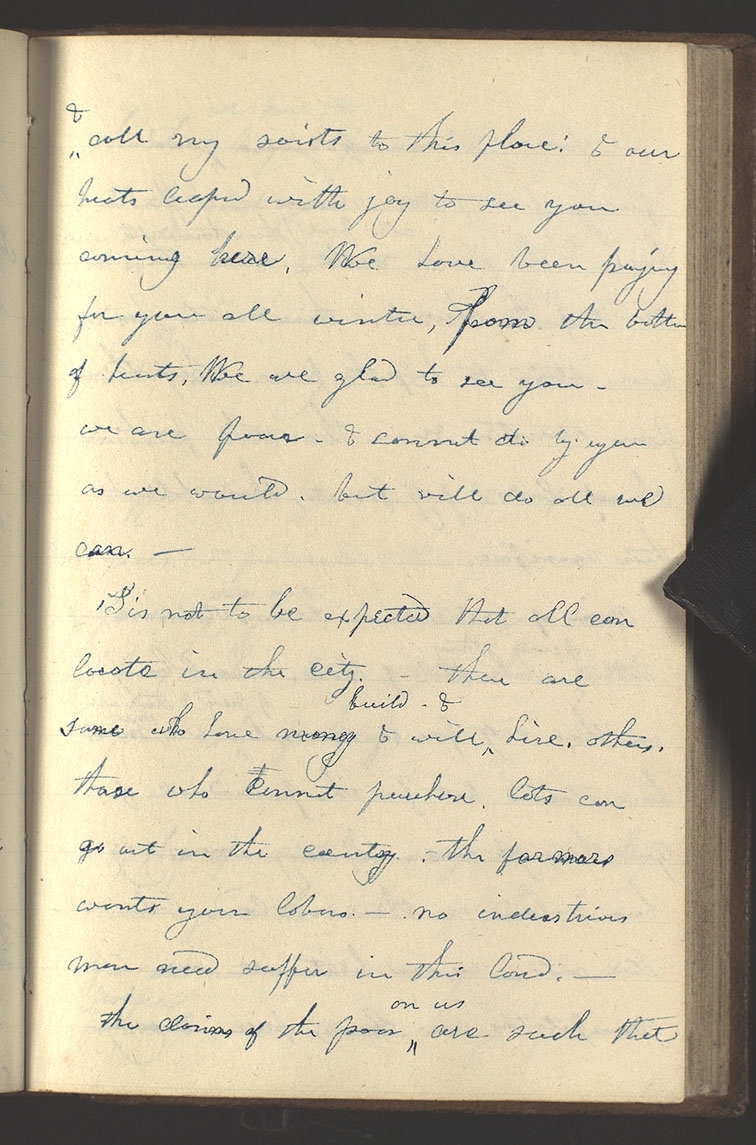 &
call my saints to this place! & our
hea[r]ts leap[e]d with joy to see you
coming here, We have been praying
for you all winter, from the bottom
of hearts, We are glad to see you -
we are poor - & cannot do by you
as we would. but will do all we
can. —
'Tis not to be expected that all can
locate in the city. - there are
build - &
some who have money & will hire. others.
those who cannot purchase. lots can
go out in the country. - the farmers
wants your labors. — no industrious
man need suffer in this land. —
on us
the claims of the poor are such that